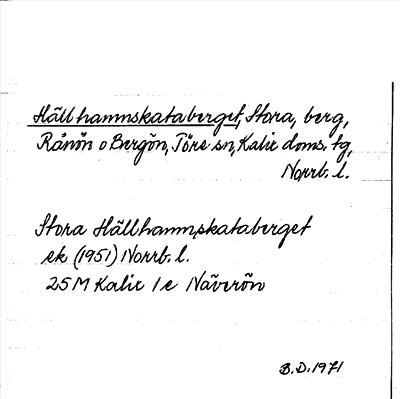 Hällhamnskataberget, Stora, berg,
Rånön o Bergön, Töre sn, Kalix doms. tg,
Norrb. l.
Stora Hällhamnskataberget
ek (1951) Norrb. l.
25 M Kalix 1 e Näverön
B.D. 1971